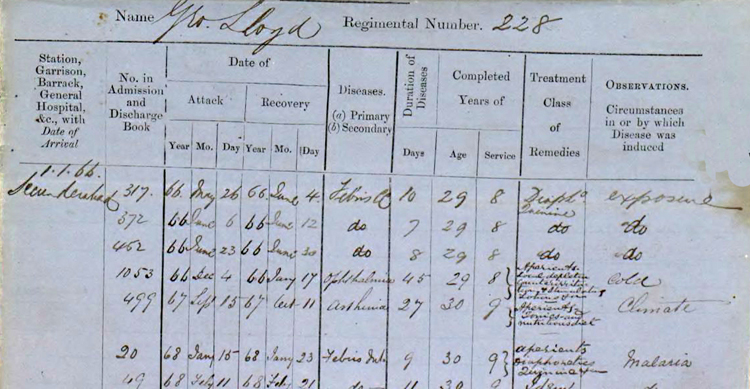 Name Geo. Lloyd Regimental Number. 228
Station, Garrison, Barrack, General Hospital, &c., with Date of Arrival
No. in Admission and Discharge Book
Date of
Attack Recovery
Year Mo. Day Year Mo. Day
Diseases. (a) Primary (b) Secondary
Duration of Diseases Days
Completed Years of
Age Service
Treatment Class of Remedies
OBSERVATIONS. Circumstances in or by which Disease was induced
1.1.66.
Secunderabad 317. 66 May 26 66 June 4. Febris 10 29 8 Diaph. Quinine exposure
372 66 June 6 66 June 12 do 7 29 8 do do
462 66 June 23 66 June 30 do 8 29 8 do do
1053 66 Dec 4 66 Jany 17 Ophthalmia 45 29 8 Aperients Cold
499 67 Sept 15 67 Oct 11 Asthenia 27 30 9 Aperients Tonics nutritious diet Climate
20 68 Jany 15 68 Jany 23 Febris Int. 9 30 9 aperients diaphoretics Quinine Malaria
49 68 Feby 11 68 Feby 21 do 11 30 9 do